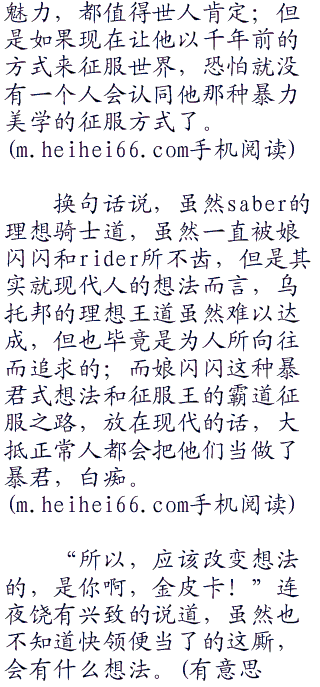 魅力，都值得世人肯定；但
是如果现在让他以千年前的
方式来征服世界，恐怕就没
有一个人会认同他那种暴力
美学的征服方式了。
(m.heihei66.com手机阅读)
换句话说，虽然saber的
理想骑士道，虽然一直被娘
闪闪和rider所不齿，但是其
实就现代人的想法而言，乌
托邦的理想王道虽然难以达
成，但也毕竟是为人所向往
而追求的；而娘闪闪这种暴
君式想法和征服王的霸道征
服之路，放在现代的话，大
抵正常人都会把他们当做了
暴君，白痴。
(m.heihei66.com手机阅读)
“所以，应该改变想法
的，是你啊，金皮卡！”连
夜饶有兴致的说道，虽然也
不知道快领便当了的这厮，
会有什么想法。(有意思